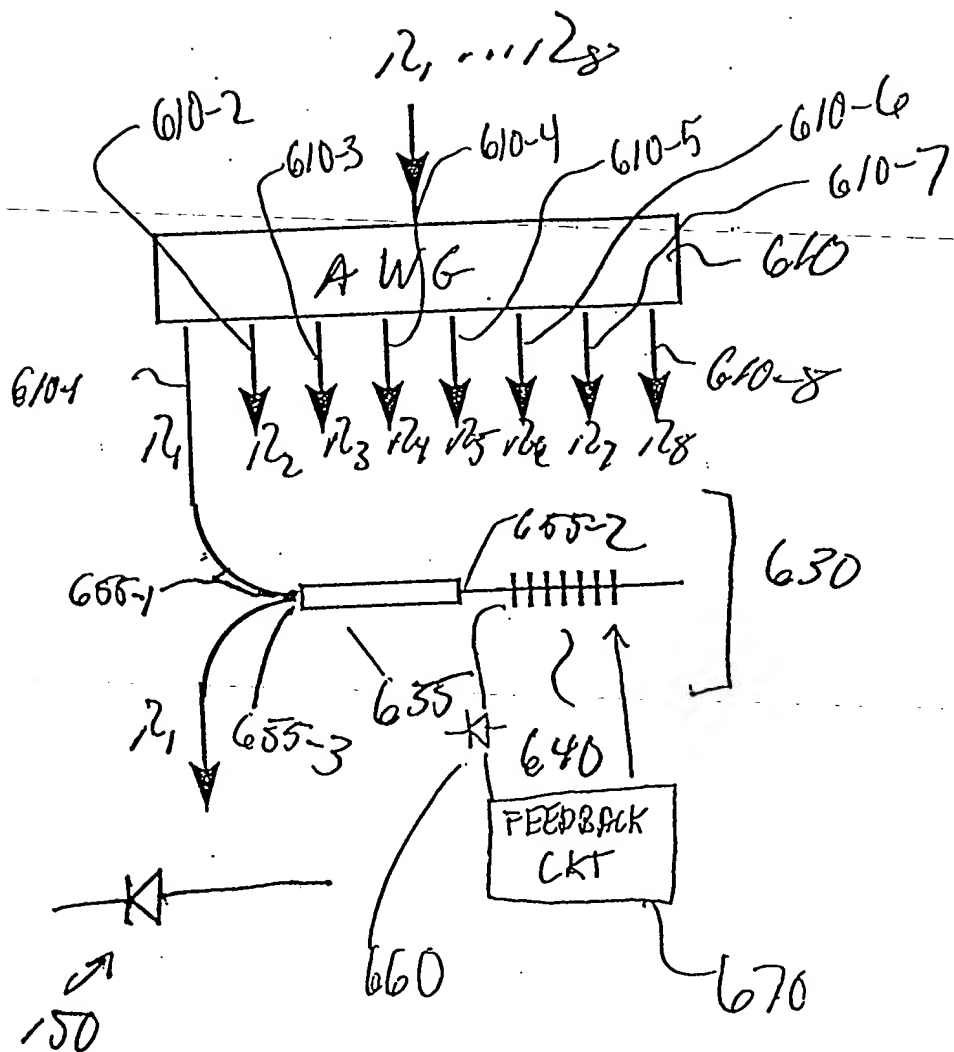 λ1 ... λ8
610-2
610-3
610-4
610-5
610-6
610-7
AWG
610
610-1
610-8
λ1
λ2
λ3
λ4
λ5
λ6
λ7
λ8
655-2
630
655-1
655
λ1
655-3
640
FEEDBACK
CKT
150
660
670